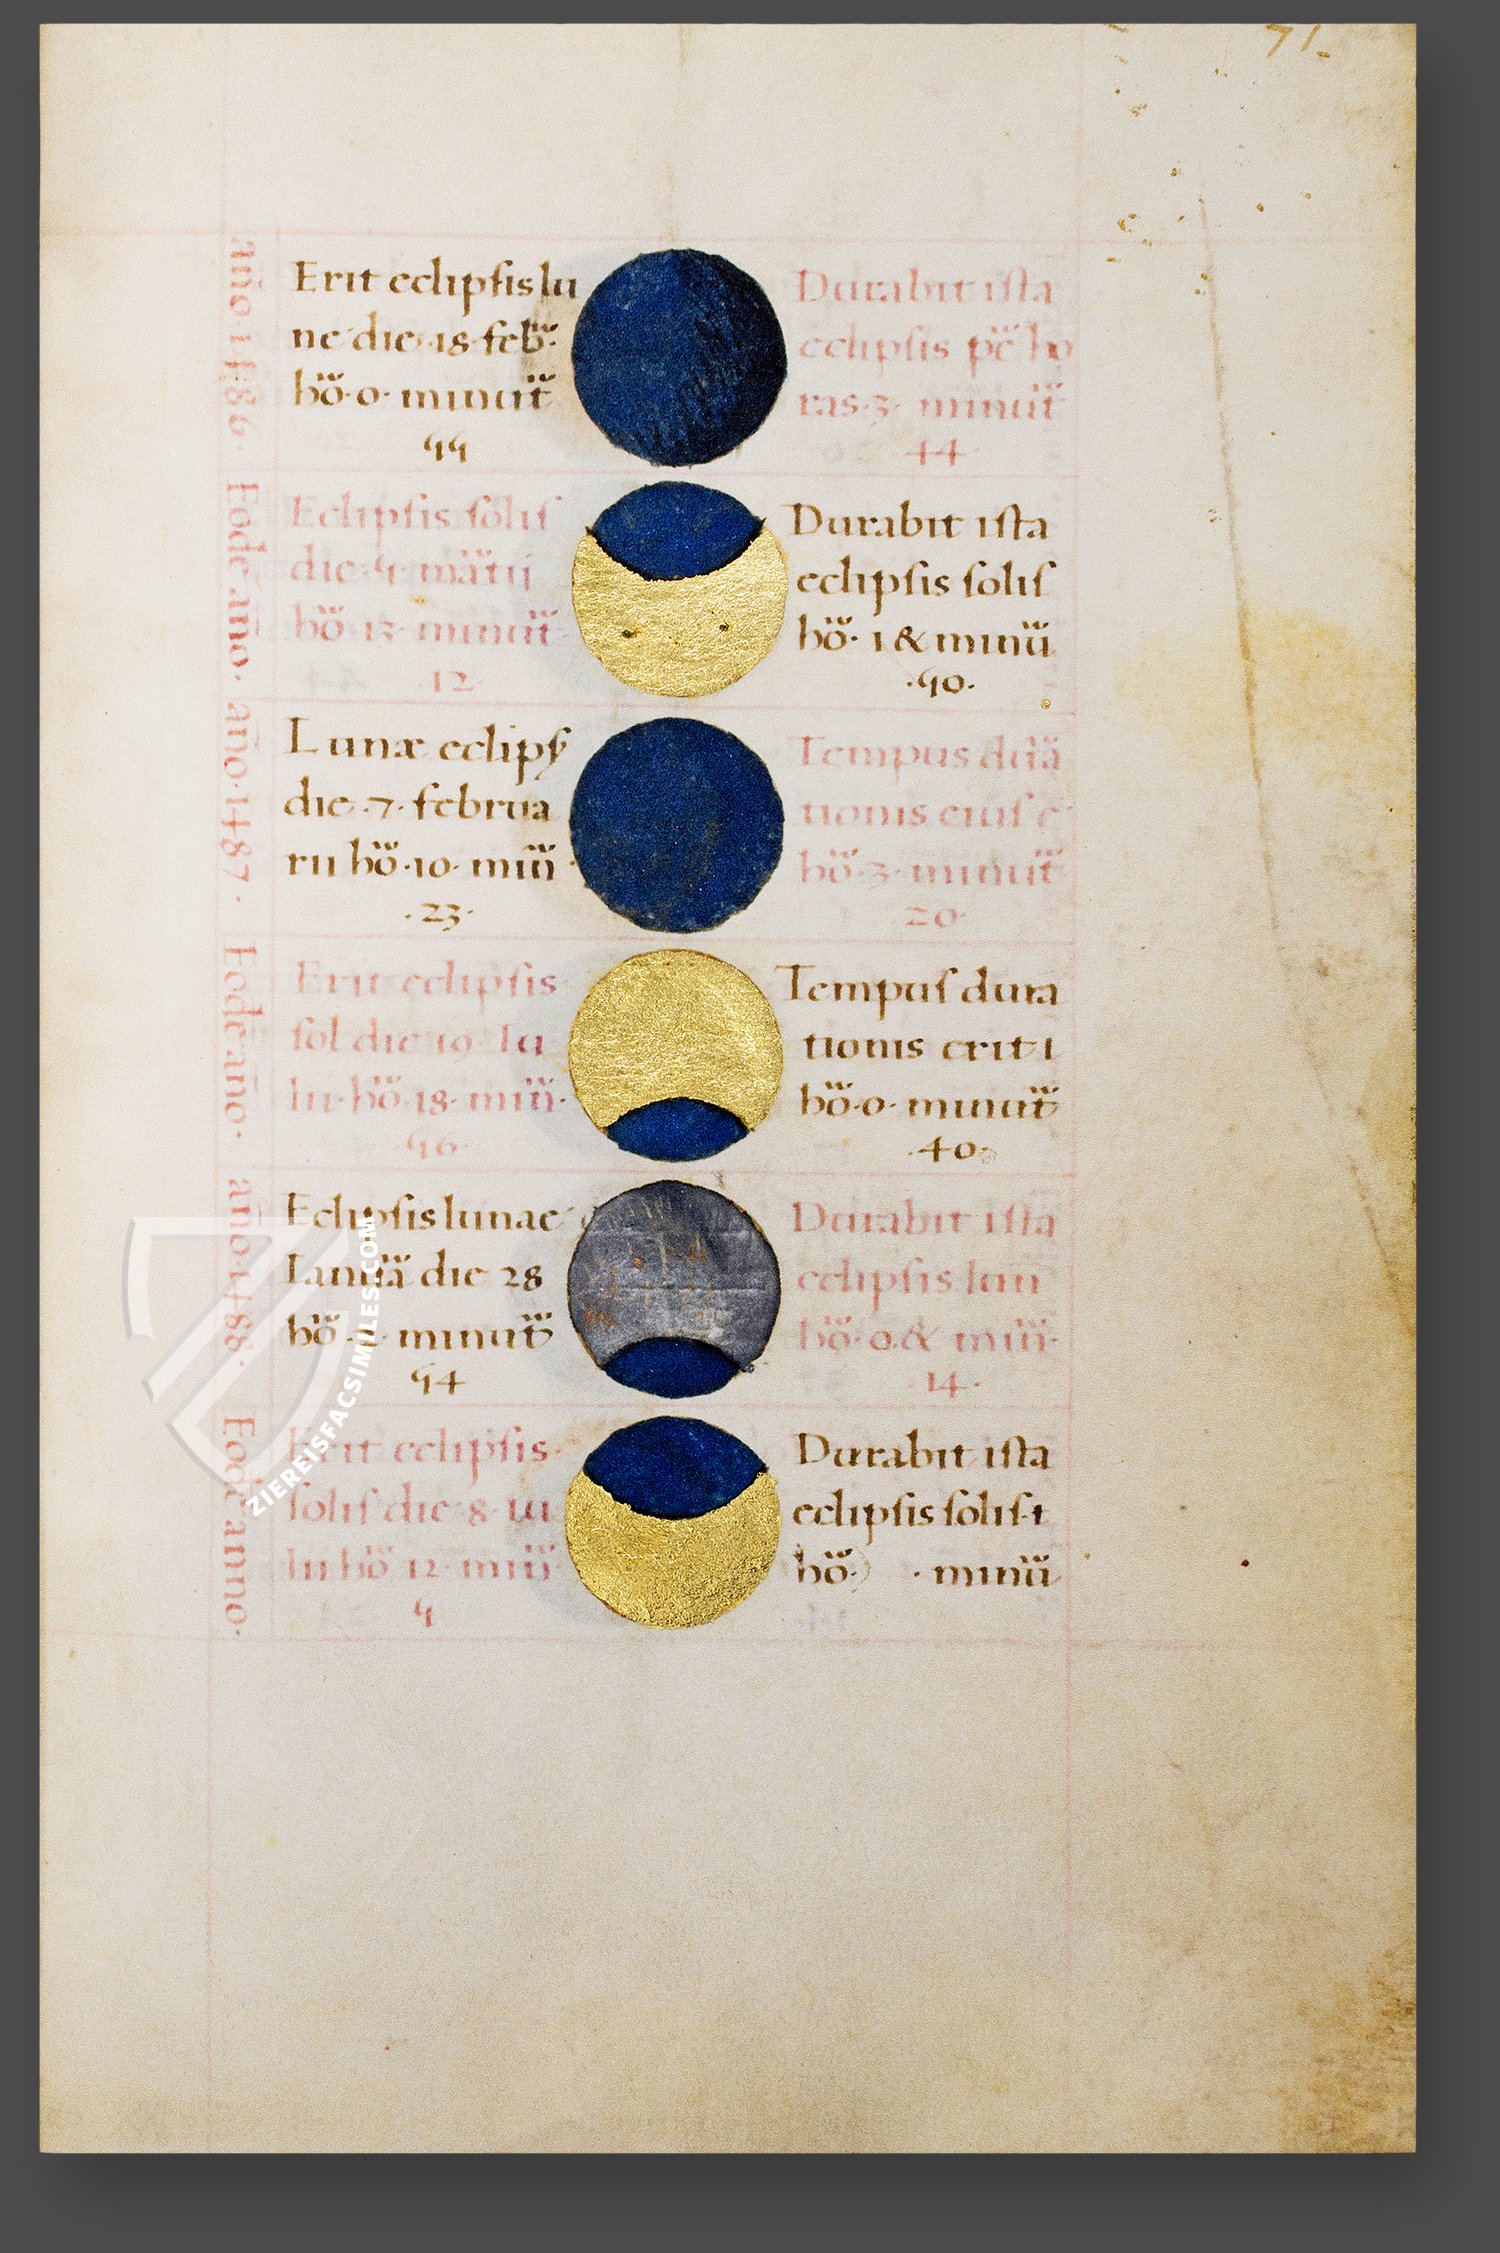 71
año·1486·
Erit eclipſis lu
ne die·18·feb̃·
hõ·0· minut̃
55
Durabit iſta
eclipſis pẽ ho
ras·3· minut̃
44
Eodẽ año·
Eclipſis ſoliſ
die·5·mãtij
hõ·13·minut̃
·12·
Durabit iſta
eclipſis ſoliſ
hõ·1 & minũ
·50·
año·1487·
Lunæ eclipſ
die·7·februa
rii hõ·10·miũ
·23·
Tempus durã
tionis eiuſ ē
hõ·3·minut̃
20·
Eodẽ año·
Erit eclipſis
ſol die 19 Iu
lii·hõ·18·miñ·
·56·
Tempuſ dura
tionis erit ı
hõ·0·minut̃
·40·
año·1488·
Eclipſis lunae
Ianuã die 28
hõ minut̃
54
Durabit iſta
eclipſis lun
hõ·0·& miñ·
·14·
Eodẽ anno·
Erit eclipſis·
ſoliſ die·8·Iu
lii hõ 12·miñ
5
Durabit iſta
eclipſis ſoliſ·t
hõ· ·minũ
ZIEREISFACSIMILES.COM